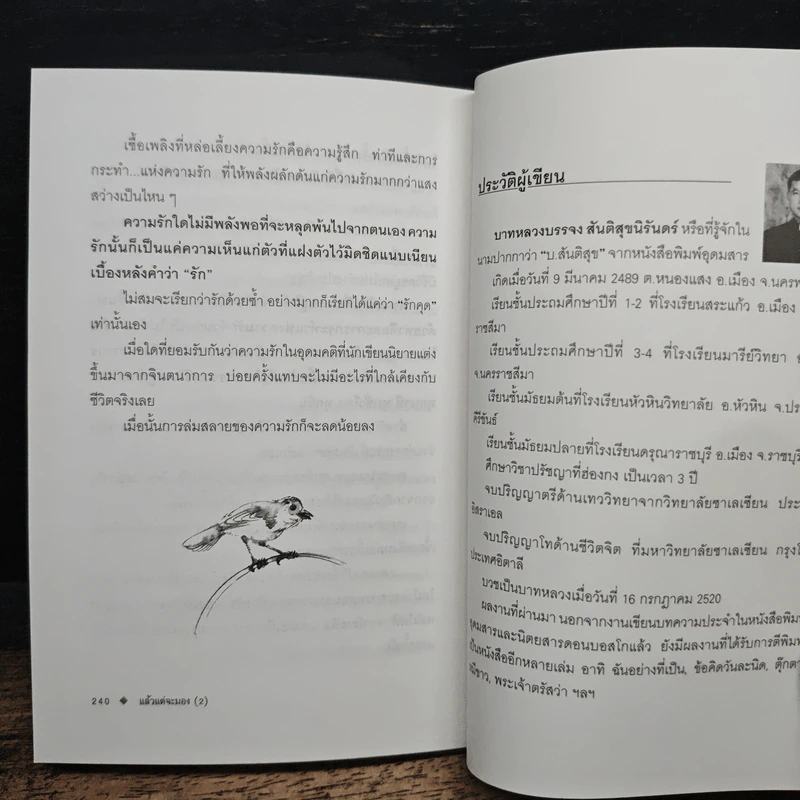 เชื้อเพลิงที่หล่อเลี้ยงความรักคือความรู้สึก ท่าทีและการ
กระทำ...แห่งความรัก ที่ให้พลังผลักดันแก่ความรักมากกว่าแสง
สว่างเป็นไหน ๆ
ความรักใดไม่มีพลังพอที่จะหลุดพ้นไปจากตนเอง ความ
รักนั้นก็เป็นแค่ความเห็นแก่ตัวที่แฝงตัวไว้มิดชิดแนบเนียน
เบื้องหลังคำว่า “รัก”
ไม่สมจะเรียกว่ารักด้วยซ้ำ อย่างมากก็เรียกได้แค่ว่า “รักคุด”
เท่านั้นเอง
เมื่อใดที่ยอมรับกันว่าความรักในอุดมคติที่นักเขียนนิยายแต่ง
ขึ้นมาจากจินตนาการ บ่อยครั้งแทบจะไม่มีอะไรที่ใกล้เคียงกับ
ชีวิตจริงเลย
เมื่อนั้นการล่มสลายของความรักก็จะลดน้อยลง
240 ◆ แล้วแต่จะมอง (2)
ประวัติผู้เขียน
บาทหลวงบรรจง สันติสุขนิรันดร์ หรือที่รู้จักใน
นามปากกาว่า “บ.สันติสุข” จากหนังสือพิมพ์อุดมสาร
เกิดเมื่อวันที่ 9 มีนาคม 2489 ต.หนองแสง อ.เมือง
เรียนชั้นประถมศึกษาปีที่ 1-2 ที่โรงเรียนสระแก้ว อ.เมือง
ราชสีมา
เรียนชั้นประถมศึกษาปีที่ 3-4 ที่โรงเรียนมารีย์วิทยา
จ.นครราชสีมา
เรียนชั้นมัธยมต้นที่โรงเรียนหัวหินวิทยาลัย อ.หัวหิน
คีรีขันธ์
เรียนชั้นมัธยมปลายที่โรงเรียนดรุณาราชบุรี อ.เมือง จ.ราชบุรี
ศึกษาวิชาปรัชญาที่ฮ่องกง เป็นเวลา 3 ปี
จบปริญญาตรีด้านเทววิทยาจากวิทยาลัยซาเลเซียน
อิสราเอล
จบปริญญาโทด้านชีวิตจิต ที่มหาวิทยาลัยซาเลเซียน
ประเทศอิตาลี
บวชเป็นบาทหลวงเมื่อวันที่ 16 กรกฎาคม 2520
ผลงานที่ผ่านมา นอกจากงานเขียนบทความประจำในหนังสือพิมพ์
อุดมสารและนิตยสารดอนบอสโกแล้ว ยังมีผลงานที่ได้รับการตีพิมพ์
เป็นหนังสืออีกหลายเล่ม อาทิ ฉันอย่างที่เป็น, ข้อคิดวันละนิด,
พระเจ้าตรัสว่า ฯลฯ